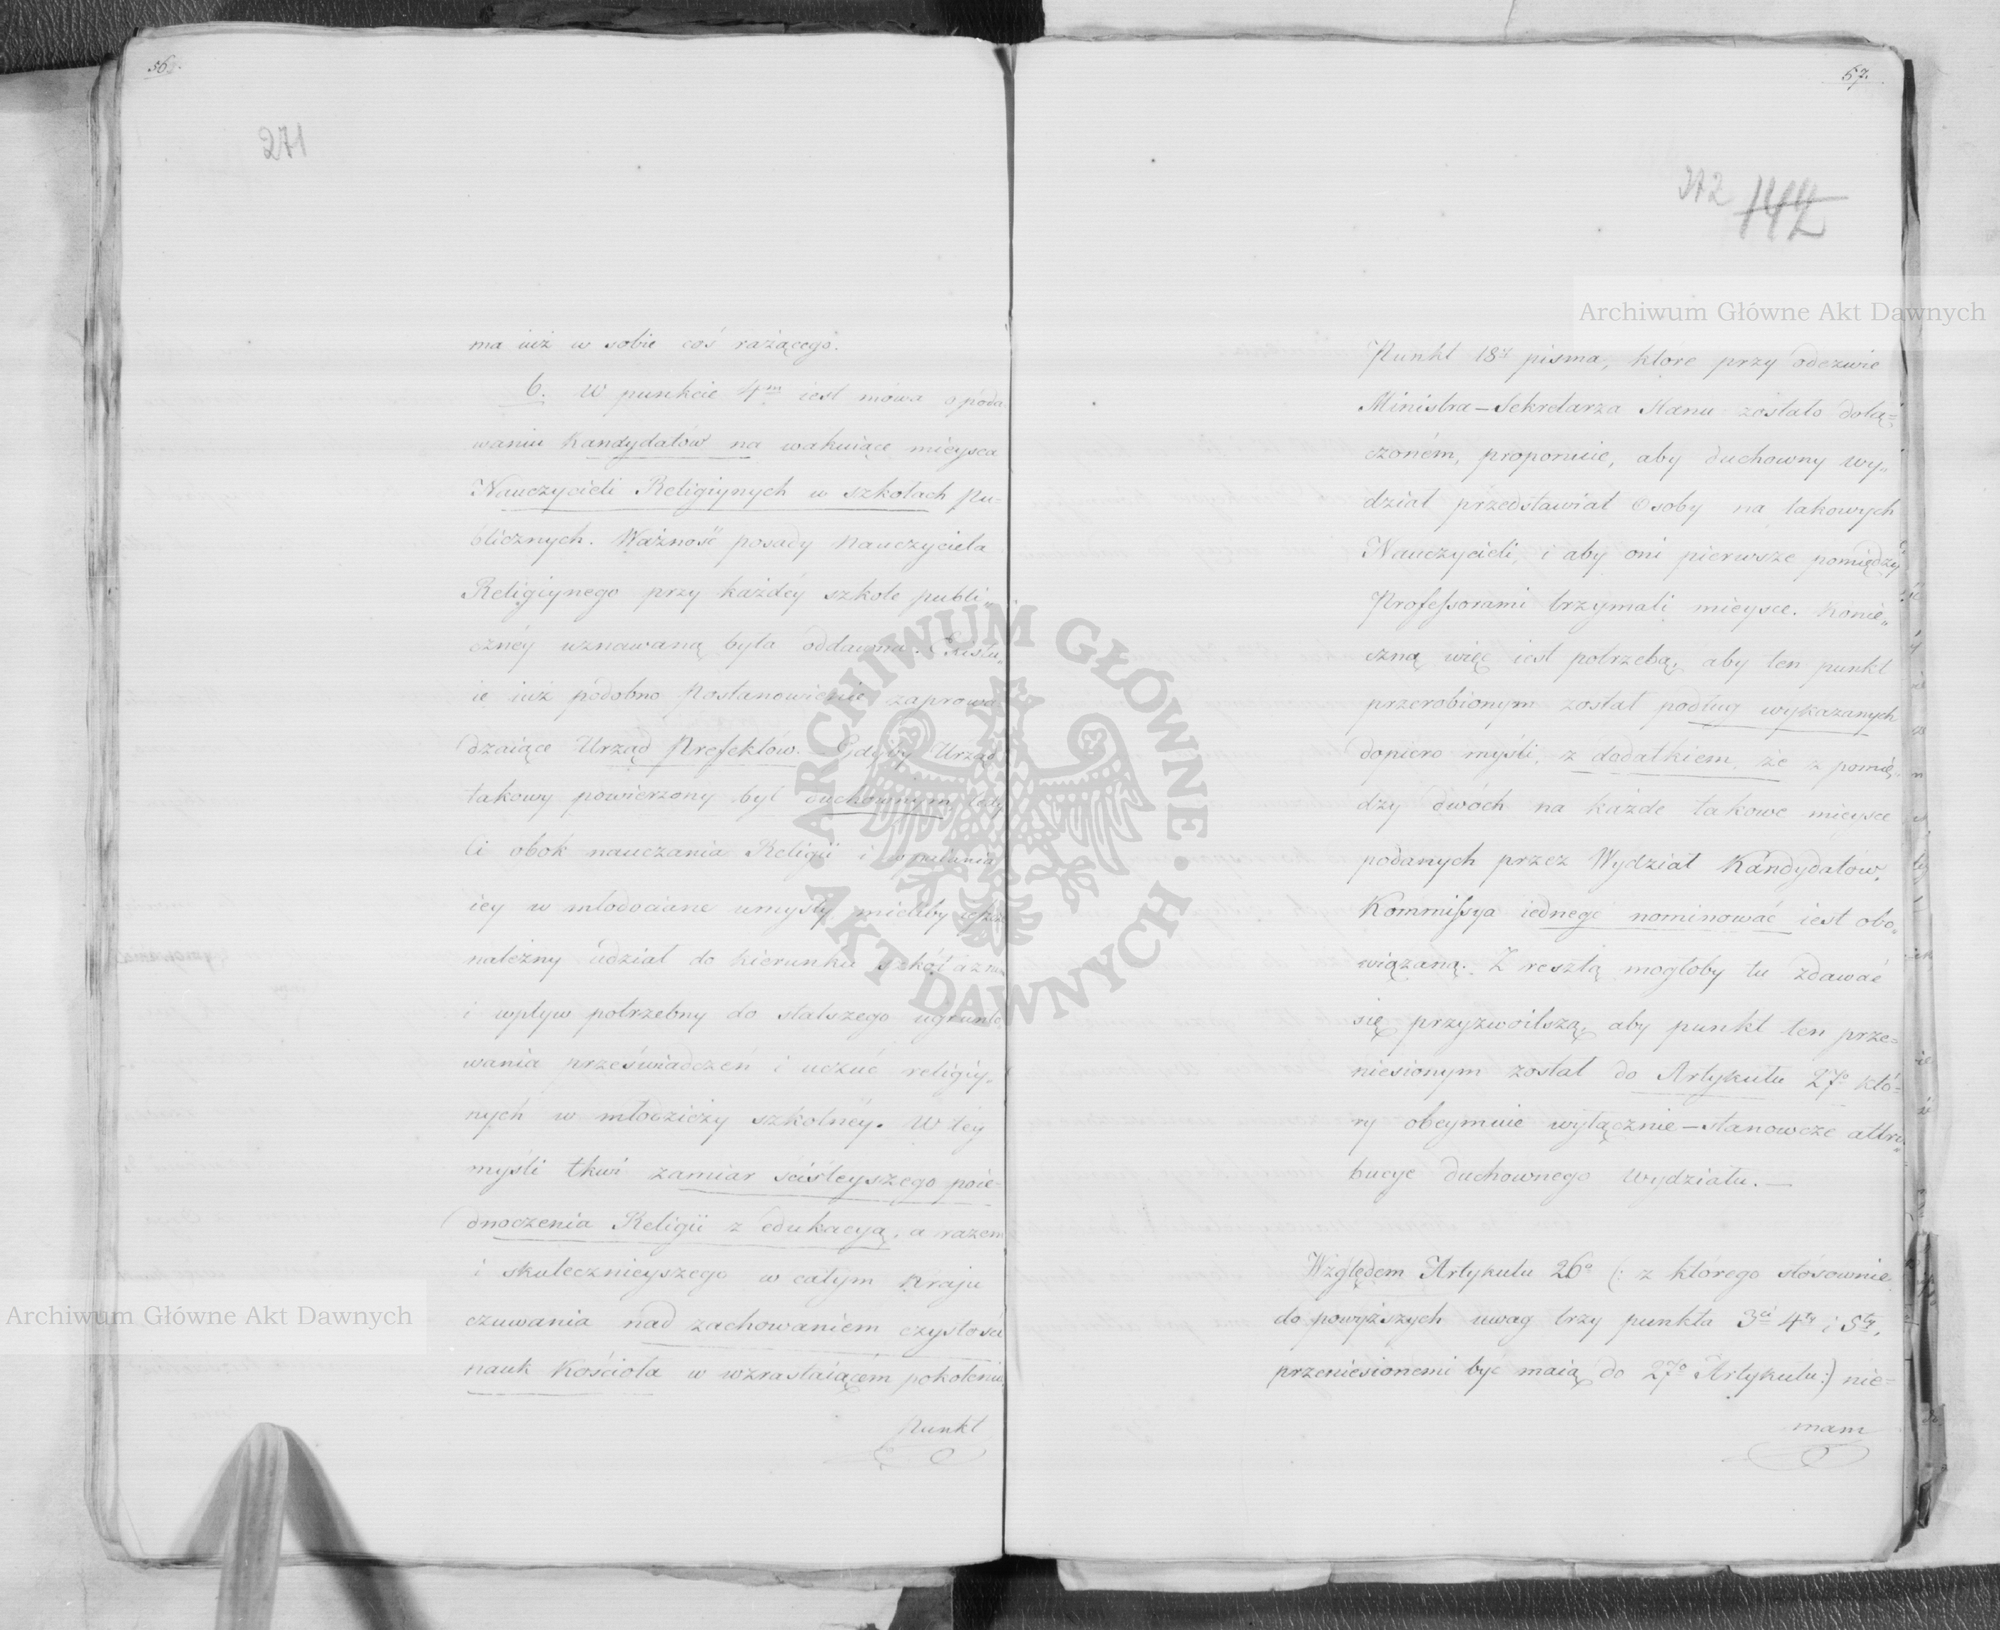 56.
271
ma iuż w sobie coś rażącego.
6. W punkcie 4m iest mowa o poda-
waniu Kandydatów na wakuiące mieysca
Nauczycieli Religiynych w szkołach Pu-
blicznych. Ważność posady Nauczyciela
Religiynego przy każdéy szkole publi„
cznéy uznawaną była oddawna. Existu„
ie iuż podobno Postanowienie zaprowa-
dzaiące Urząd Prefektów. Gdyby Urząd
takowy powierzony był duchownym, tedy
Ci obok nauczania Religii i wpaiania
iey w młodociane umysły, mieliby ieszcze
należny udział do kierunku szkół
i wpływ potrzebny do stalszego ugrunto„
wania przeświadczeń i uczuć religiy„
nych w młodzieży szkolnéy. W téy
myśli tkwi zamiar ściśleyszego poie-
dnoczenia Religii z edukacyą, a razem
i skutecznieyszego w całym Kraju
czuwania nad zachowaniem czystości
nauk Kościoła w wzrastaiącém pokoleniu.
Punkt
57.
272 142
Punkt 18y pisma, które przy odezwie
Ministra–Sekretarza Stanu zostało dołą=
czoném, proponuie, aby duchowny wy„
dział przedstawiał Osoby na takowych
Nauczycieli, i aby oni pierwsze pomiędzy
Professorami trzymali mieysce. Konie„
czną więc iest potrzebą, aby ten punkt
przerobionym został podług wykazanych
dopiero myśli, z dodatkiem, że z pomię„
dzy dwóch na każde takowe mieysce
podanych przez Wydział Kandydatów,
Kommissya iednego nominować iest obo„
wiązaną. Z resztą mogłoby tu zdawać
się przyzwoitszą, aby punkt ten prze=
niesionym został do Artykułu 27o któ-
ry obeymuie wyłącznie–stanowcze attry„
bucye duchownego Wydziału.—
Względem Artykułu 26o (: z którego stósownie
do powyższych uwag trzy punkta 3ci 4ty i 5ty,
przeniesionemi być maią do 27o Artykułu:) nie=
mam
Archiwum Główne Akt Dawnych
Archiwum Główne Akt Dawnych
ARCHIWUM GŁÓWNE AKT DAWNYCH